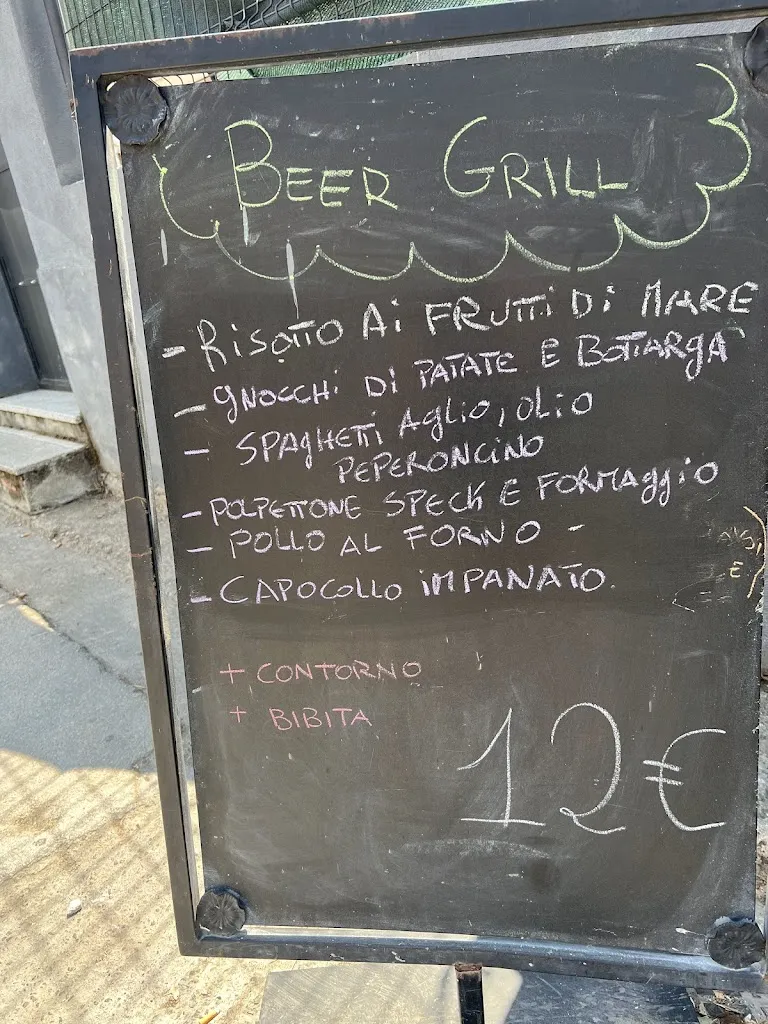 BEER GRILL
- RISOTTO Ai FRUTTi Di MARE
- GNOCCHi Di PATATE E BOTTARGA
- SPAGHETTi AGLiO, OLiO
PEPERONCiNO
- POLPETTONE SPECK E FORMAGGiO
- POLLO AL FORNO -
- CAPOCOLLO iMPANATO.
+ CONTORNO
+ BIBITA
12€